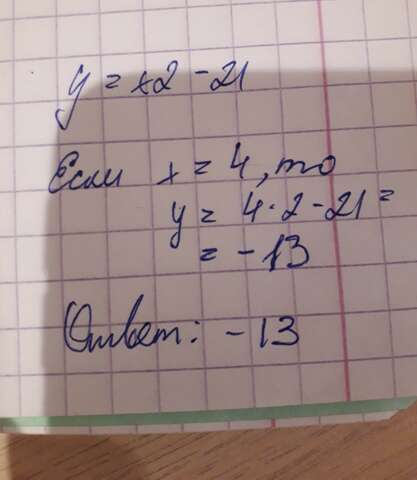 y = x2 - 21
Если x = 4, то
y = 4 · 2 - 21 =
= -13
Ответ: -13